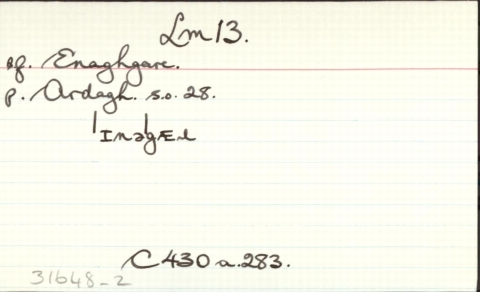 Lm 13.
sf. Enaghgare.
p. Ardagh. s.o. 28.
ˈɪnəˈgæɛl
C 430 a.283.
31648-2